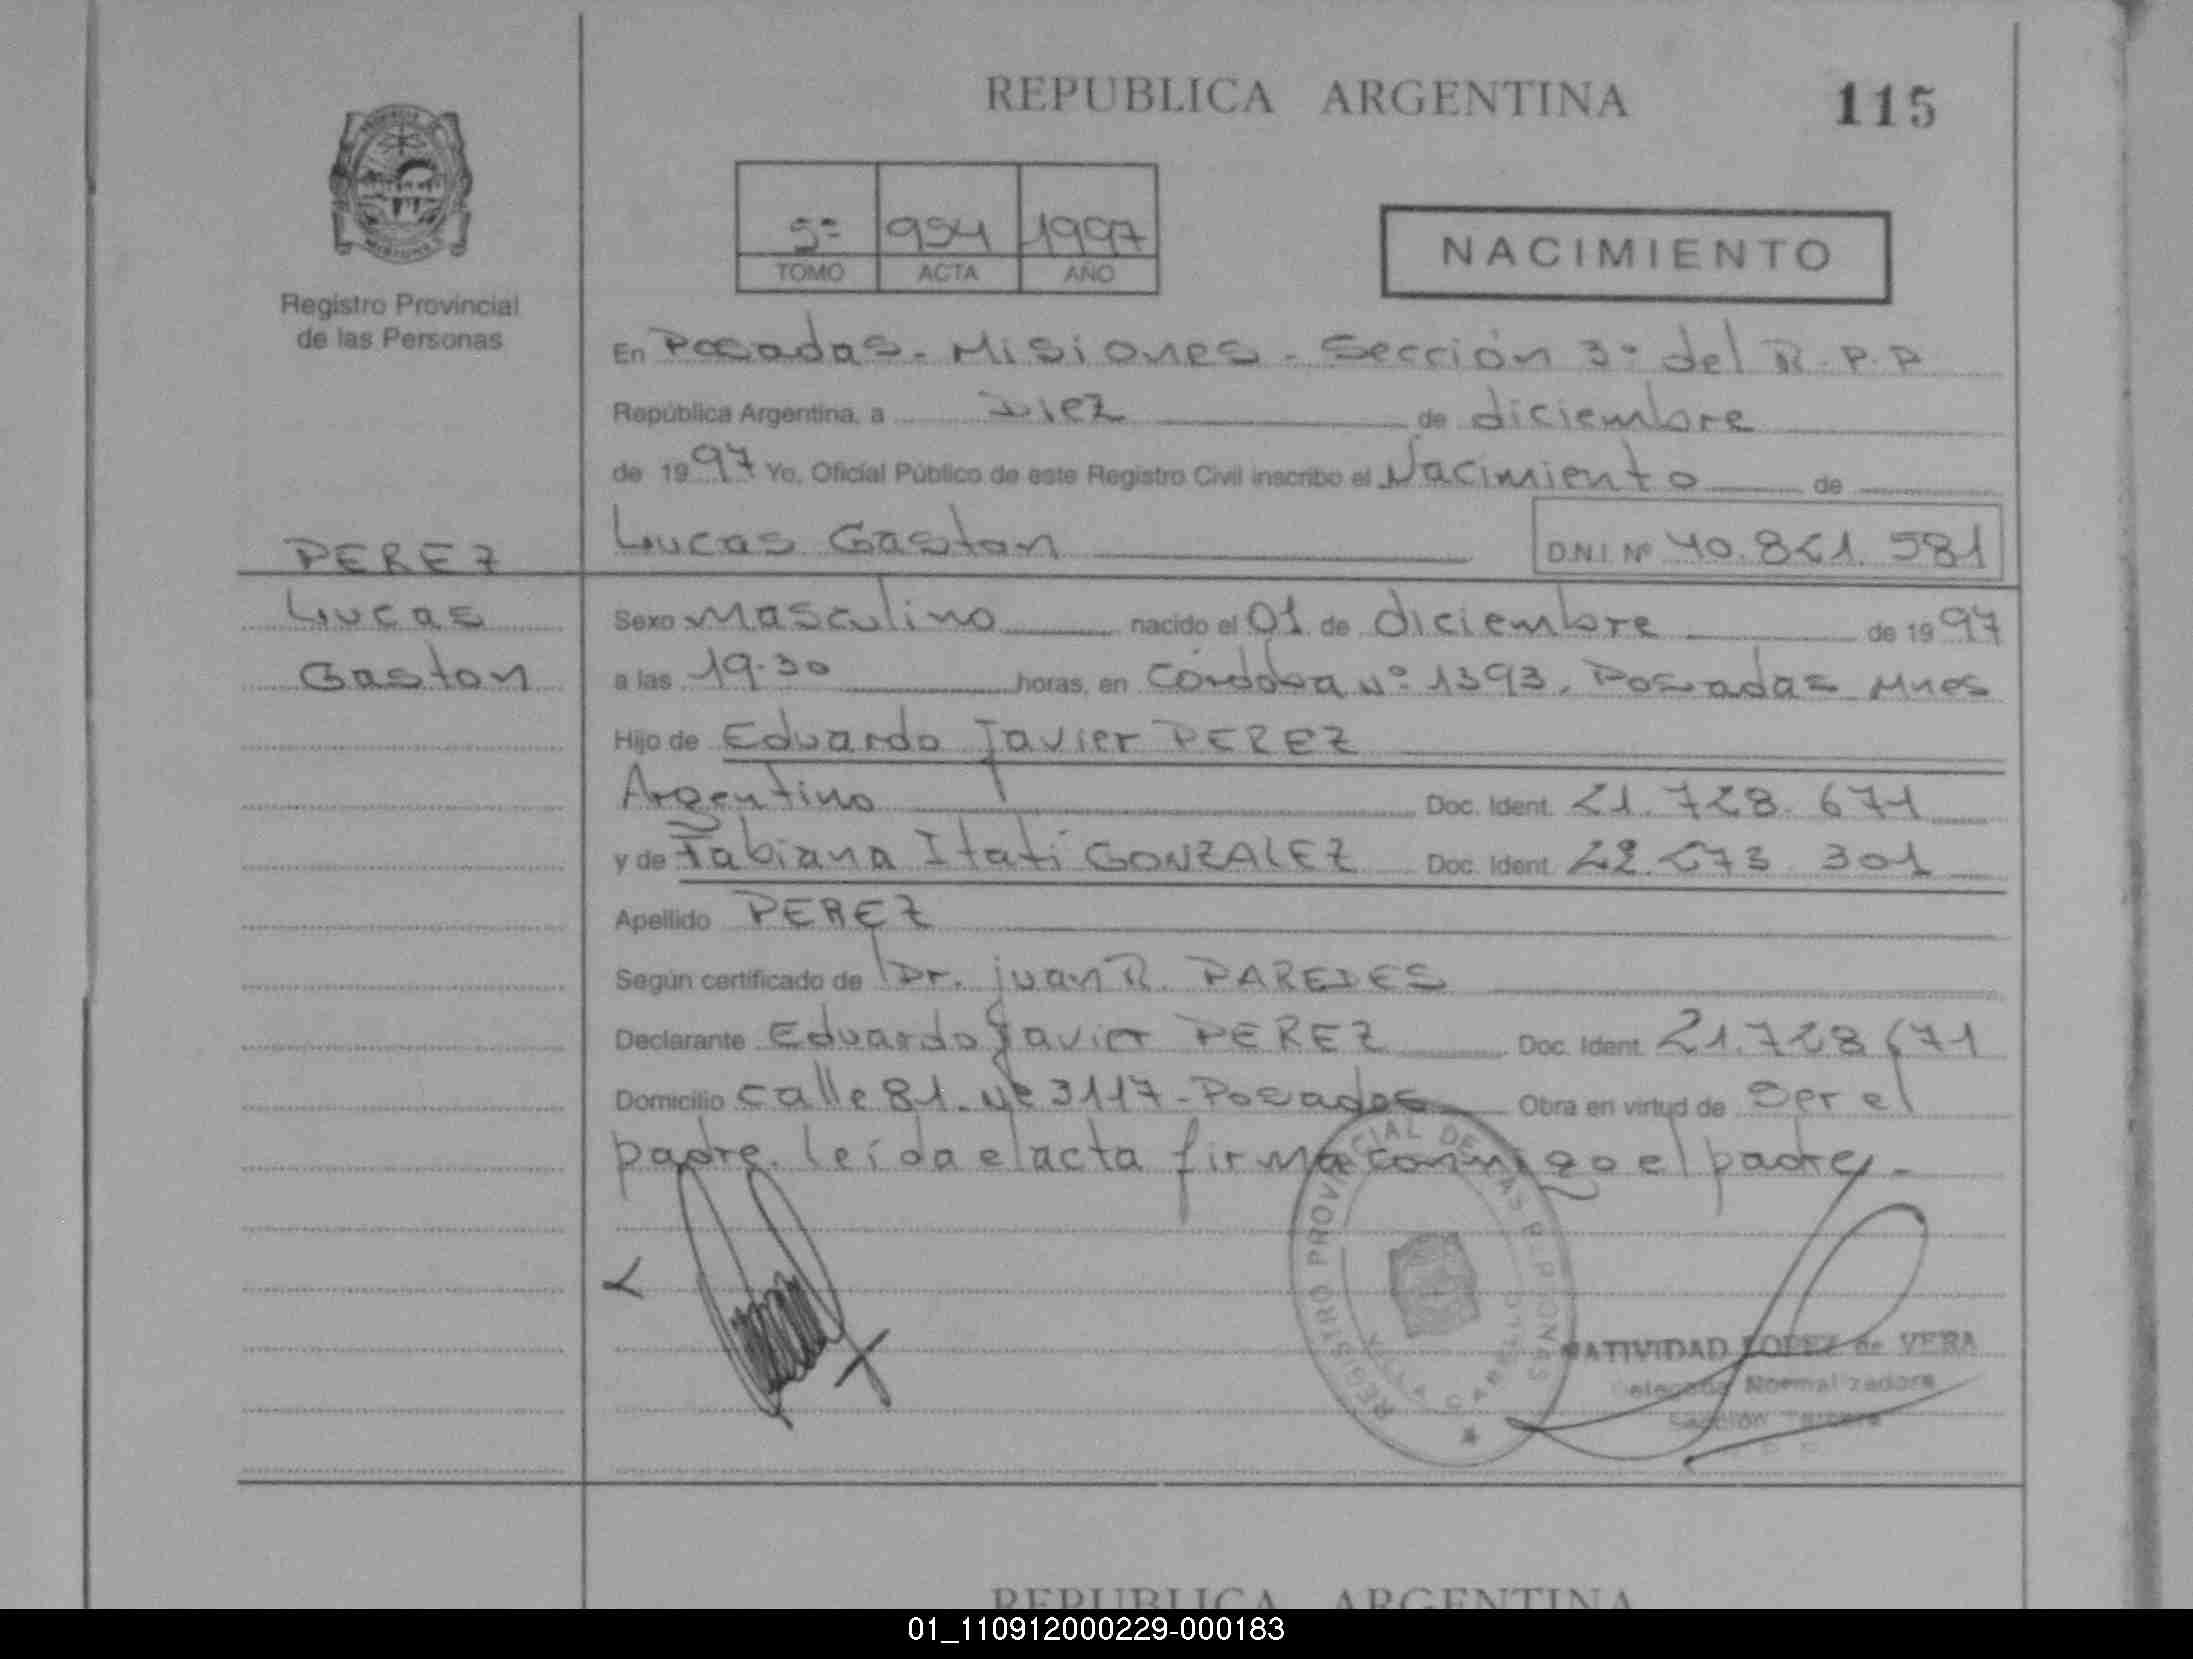 REPUBLICA ARGENTINA 115
Registro Provincial
de las Personas
5º 954 1997
TOMO ACTA AÑO
NACIMIENTO
En Posadas - Misiones - Sección 3º del R.P.P
República Argentina, a Diez de diciembre
de 1997 Yo, Oficial Público de este Registro Civil inscribo el Nacimiento de
PEREZ
Lucas Gaston D.N.I. Nº 40.861.581
Lucas
Gaston
Sexo masculino nacido el 01 de diciembre de 1997
a las 19.30 horas, en Córdoba Nº 1393, Posadas Mnes
Hijo de Eduardo Javier PEREZ
Argentino Doc. Ident. 21.728.671
y de Fabiana Itatí GONZALEZ Doc. Ident. 301
Apellido PEREZ
Según certificado de Dr. juan R. PAREDES
Declarante Eduardo Javier PEREZ Doc. Ident. 21.728671
Domicilio calle 81. Nº 3117 - Posadas Obra en virtud de Ser el
padre. leída el acta firma conmigo el padre.-
REGISTRO PROVINCIAL DE LAS PERSONAS
VILLA CABELLO
NATIVIDAD LOPEZ de VERA
Delegada Normalizadora
Sección Tercera
REPUBLICA ARGENTINA
01_110912000229-000183